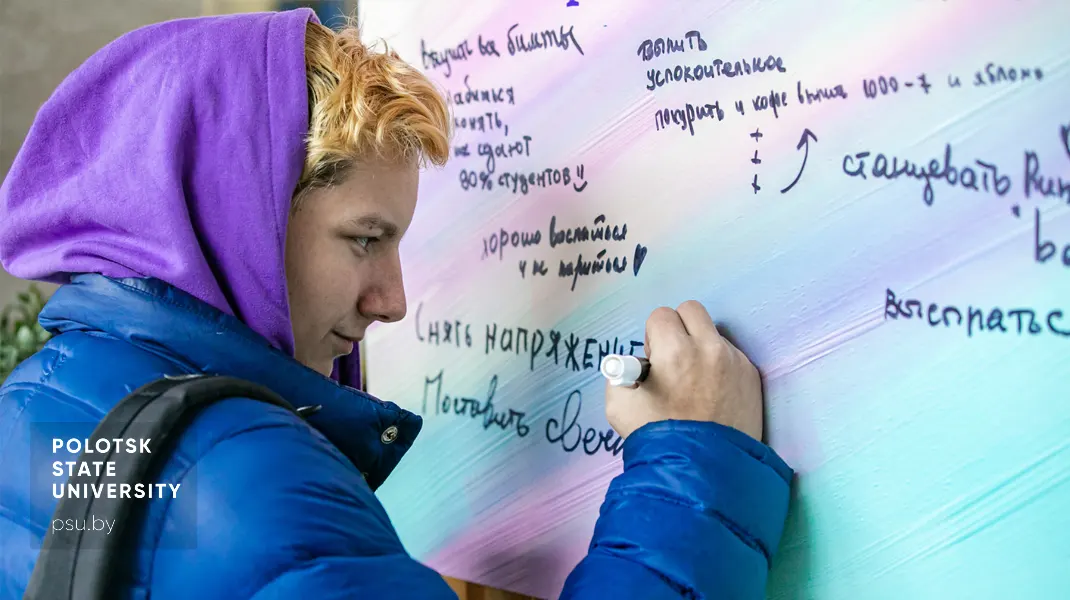 Выучить все билеты
понять,
не сдают
80% студентов
выпить
успокоительное
покурить и кофе выпить 1000-7 и яблоко
станцевать
хорошо выспаться
и не париться ♥
Снять напряжение
Поставить свечи
выспаться
POLOTSK
STATE
UNIVERSITY
psu.by